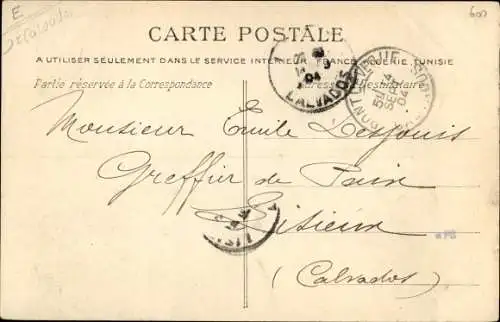 E
(Calvados)
600
CARTE POSTALE
A UTILISER SEULEMENT DANS LE SERVICE INTERIEUR, FRANCE, ALGERIE, TUNISIE
Partie réservée à la Correspondance
CALVADOS
04
PONT-L'EVEQUE
SEPT
04
Monsieur Emile Desjouis
Greffier de Paix
Lisieux
(Calvados)